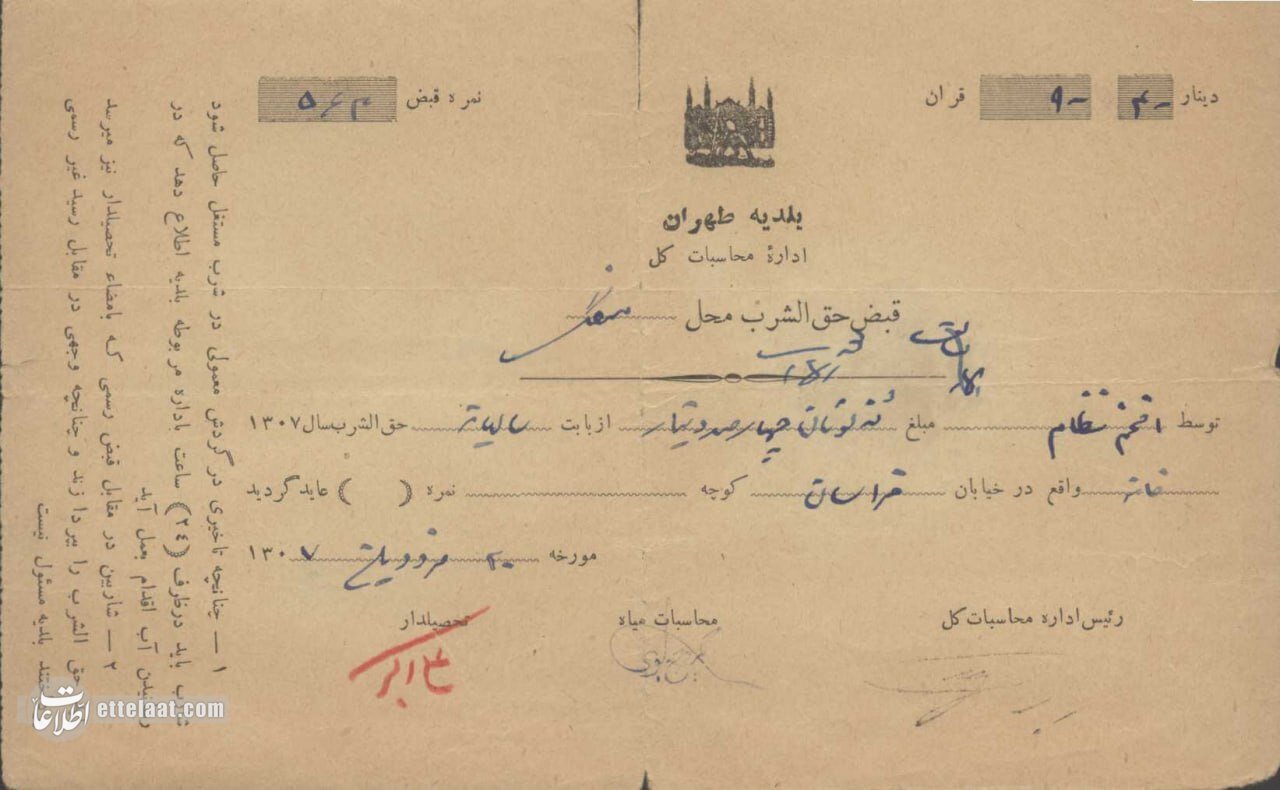 دینار ۴۰ ۹۰ قران
نمره قبض ۵۶۳
بلدیه طهران
ادارهٔ محاسبات کل
قبض حق الشرب محل
توسط افخم نظام مبلغ نه تومان چهار صد دینار از بابت سالیانه حق الشرب سال ۱۳۰۷
خانه واقع در خیابان خراسان کوچه نمره ( ) عاید گردید
مورخه ۲۰ فروردین ۱۳۰۷
رئیس اداره محاسبات کل محاسبات میاه تحصیلدار
۱ — چنانچه تأخیری در گردش معمولی در شرب مستغل حاصل شود
شرب باید درظرف (۲٤) ساعت باداره مربوطه بلدیه اطلاع دهد که در
رسیدن آب اقدام بعمل آید
۲ — شاربین در مقابل قبض رسمی که بامضاء تحصیلدار نیز میرسد
حق الشرب را بپردازند و چنانچه وجهی در مقابل رسید غیر رسمی
بلدیه مسئول نیست
اطلاعات ettelaat.com